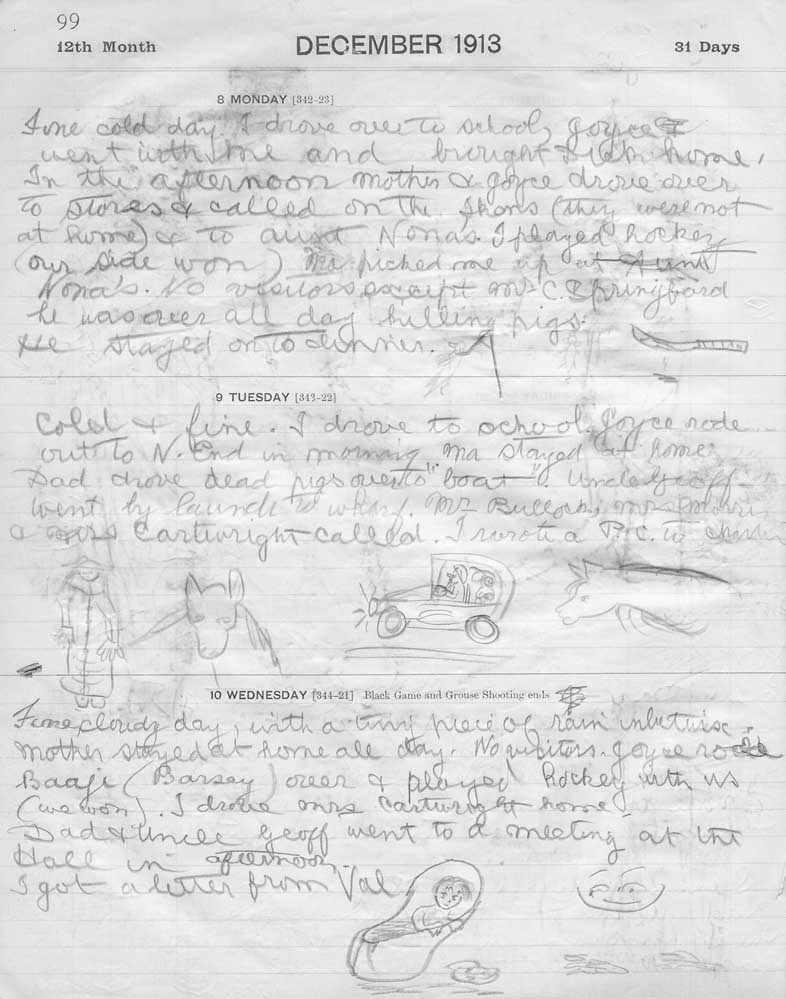 99
12th Month DECEMBER 1913 31 Days
8 MONDAY [342-23]
Fine cold day. I drove over to school, Joyce
went with me and brought home.
In the afternoon mother & Joyce drove over
to stores & called on the (they were not
at home) & to aunt Nona's. I played hockey
(our side won) Ma picked me up at Aunt
Nona's. No visitors except Mr C. Springford
he was over all day killing pigs.
He stayed on to dinner.
9 TUESDAY [343-22]
Cold & fine. I drove to school. Joyce rode
out to N. End in morning Ma stayed at home.
Dad drove dead pigs over to "boat". Uncle Geoff
went by launch to wharf. Mr Bullock, Mrs Morris
& Mrs Cartwright called. I wrote a P.C. to
10 WEDNESDAY [344-21] Black Game and Grouse Shooting ends
Fine cloudy day, with a tiny piece of rain inbetwixt.
Mother stayed at home all day. No visitors. Joyce rode
Baaje (Barsey) over & played hockey with us
(we won). I drove Mrs Cartwright home
Dad & Uncle Geoff went to a meeting at the
Hall in afternoon.
I got a letter from Val.